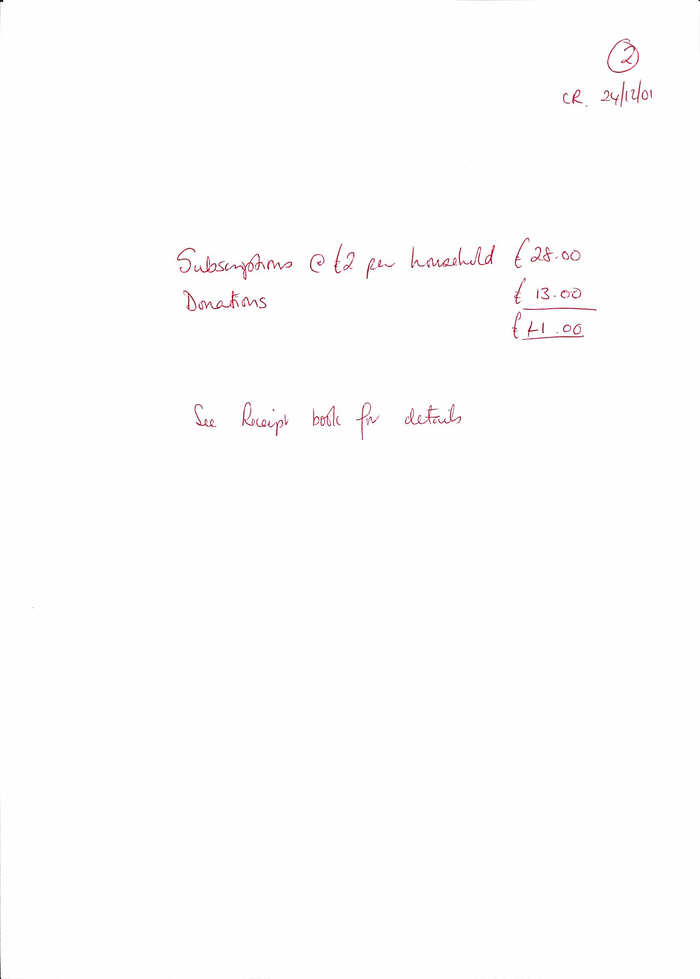 2
CR. 24/12/01
Subscriptions @ £2 per household £28.00
Donations £ 13.00
£41.00
See Receipt book for details